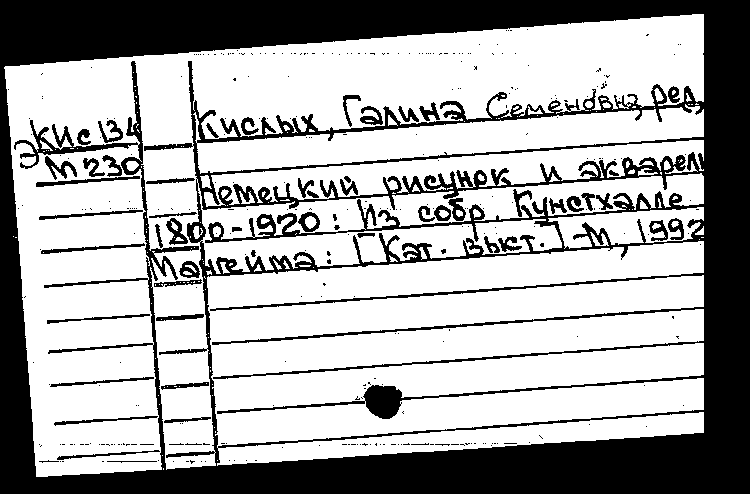 Кислых, Галина Семеновна, ред.
КИс134
М230
Немецкий рисунок и акварель
1800-1920: Из собр. Кунстхалле
Мангейма: [Кат. выст.] -М, 1992